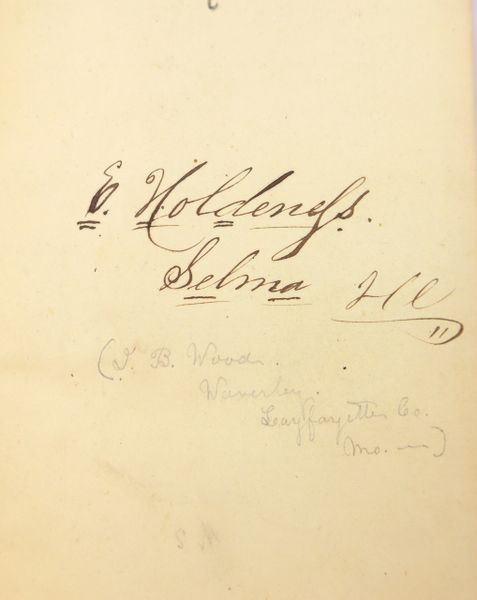 E. Holderness.
Selma
(I. B. Woods.
Waverley.
Layfayette Co.
Mo. —)
S